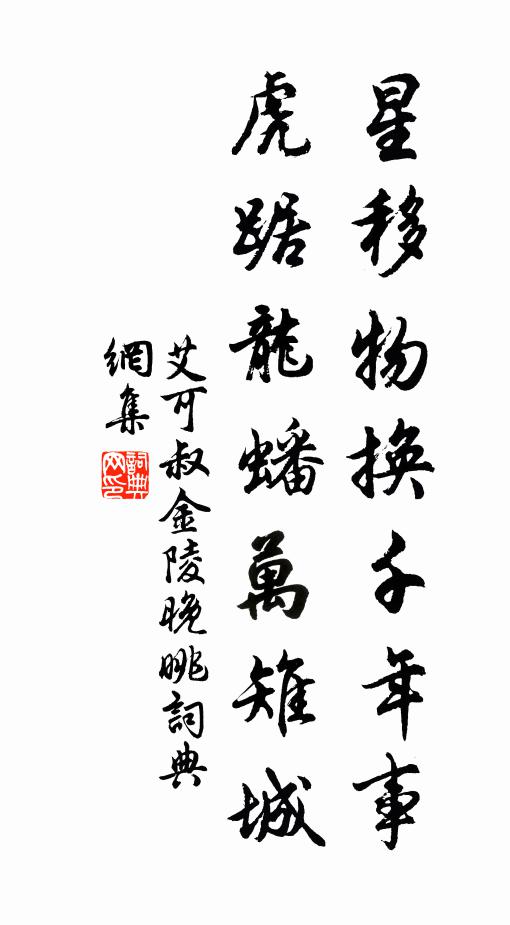 星移物換千年事
虎踞龍蟠萬雉城
艾可叔金陵晚眺詞典
網集
詞典
网印